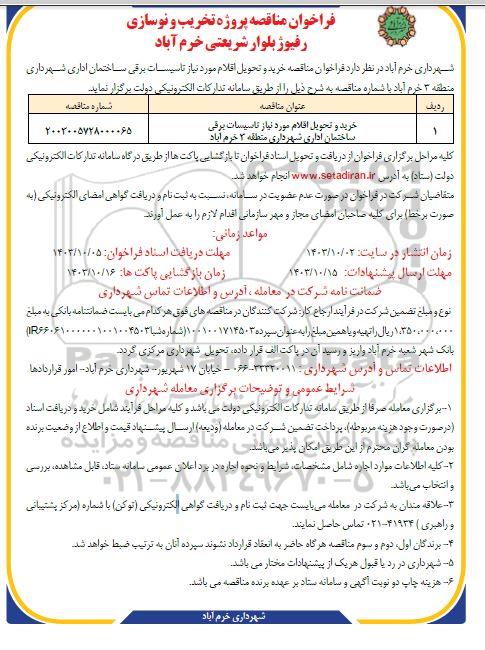 فراخوان مناقصه پروژه تخریب و نوسازی
رفیوژ بلوار شریعتی خرم آباد
شهرداری خرم آباد در نظر دارد فراخوان مناقصه خرید و تحویل اقلام مورد نیاز تاسیسات برقی ساختمان اداری شهرداری
منطقه ۳ خرم آباد با شماره مناقصه به شرح ذیل را از طریق سامانه تدارکات الکترونیکی دولت برگزار نماید.
ردیف عنوان مناقصه شماره مناقصه
۱ خرید و تحویل اقلام مورد نیاز تاسیسات برقی
ساختمان اداری شهرداری منطقه ۳ خرم آباد
۲۰۰۲۰۰۵۷۲۸۰۰۰۰۶۵
کلیه مراحل برگزاری فراخوان از دریافت و تحویل اسناد فراخوان تا بازگشایی پاکت ها از طریق درگاه سامانه تدارکات الکترونیکی
دولت (ستاد) به آدرس www.setadiran.ir انجام خواهد شد.
متقاضیان شرکت در فراخوان در صورت عدم عضویت در سامانه، نسبت به ثبت نام و دریافت گواهی امضای الکترونیکی (به
صورت برخط) برای کلیه صاحبان امضای مجاز و مهر سازمانی اقدام لازم را به عمل آورند.
مواعد زمانی:
زمان انتشار در سایت: ۱۴۰۳/۱۰/۰۲ مهلت دریافت اسناد فراخوان: ۱۴۰۳/۱۰/۰۵
مهلت ارسال پیشنهادات: ۱۴۰۳/۱۰/۱۵ زمان بازگشایی پاکت ها: ۱۴۰۳/۱۰/۱۶
ضمانت نامه شرکت در معامله، آدرس و اطلاعات تماس شهرداری
نوع و مبلغ تضمین شرکت در فرآیند ارجاع کار: شرکت کنندگان در مناقصه های فوق هر کدام می بایست ضمانتنامه بانکی به مبلغ
۱.۳۵۰.۰۰۰.۰۰۰ ریال را تهیه و یا همین مبلغ را به عنوان سپرده
بانک شهر شعبه خرم آباد واریز و رسید آن در پاکت الف قرار داده، تحویل شهرداری مرکزی گردد.
اطلاعات تماس و آدرس شهرداری: ۳۳۳۲۰۰۱۱-۰۶۶ - خیابان ۱۷ شهریور- شهرداری خرم آباد- امور قراردادها
شرایط عمومی و توضیحات برگزاری معامله شهرداری
۱--برگزاری معامله صرفا از طریق سامانه تدارکات الکترونیکی دولت می باشد و کلیه مراحل فرآیند شامل خرید و دریافت اسناد
(درصورت وجود هزینه مربوطه)، پرداخت تضمین شرکت در معامله (ودیعه) ارسال پیشنهاد قیمت و اطلاع از وضعیت برنده
بودن معامله گران محترم از این طریق امکان پذیر می‌باشد.
۲-کلیه اطلاعات موارد اجاره شامل مشخصات، شرایط و نحوه اجاره در برد اعلان عمومی سامانه ستاد، قابل مشاهده، بررسی
و انتخاب می‌باشد.
۳--علاقه مندان به شرکت در معامله می‌بایست جهت ثبت نام و دریافت گواهی الکترونیکی (توکن) با شماره (مرکز پشتیبانی
و راهبری) ۴۱۹۳۴-۰۲۱ تماس حاصل نمایند.
۴- برندگان اول، دوم و سوم مناقصه هرگاه حاضر به انعقاد قرارداد نشوند سپرده آنان به ترتیب ضبط خواهد شد.
۵- شهرداری در رد یا قبول هریک از پیشنهادات مختار می باشد.
۶- هزینه چاپ دو نوبت آگهی و سامانه ستاد بر عهده برنده مناقصه می باشد.
شهرداری خرم آباد